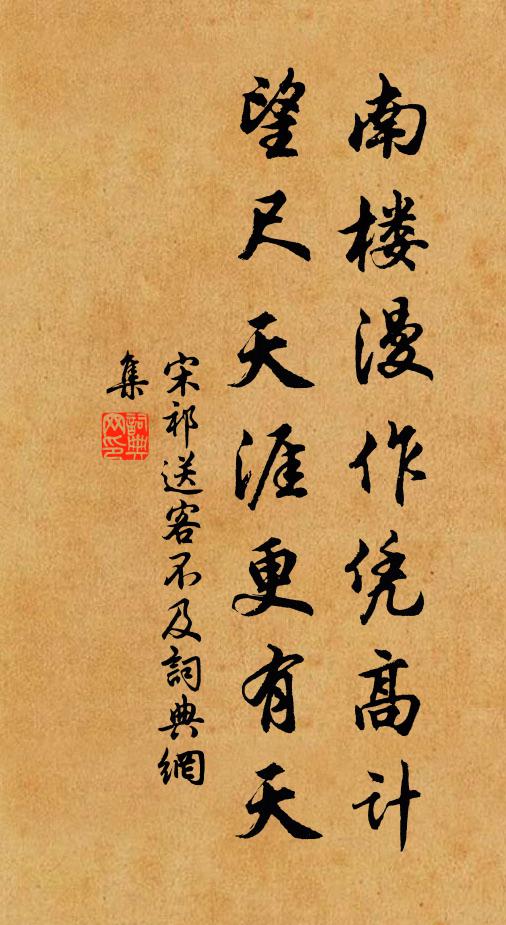 南楼漫作凭高计
望尺天涯更有天
宋祁送客不及詞典網
集
詞典
网印